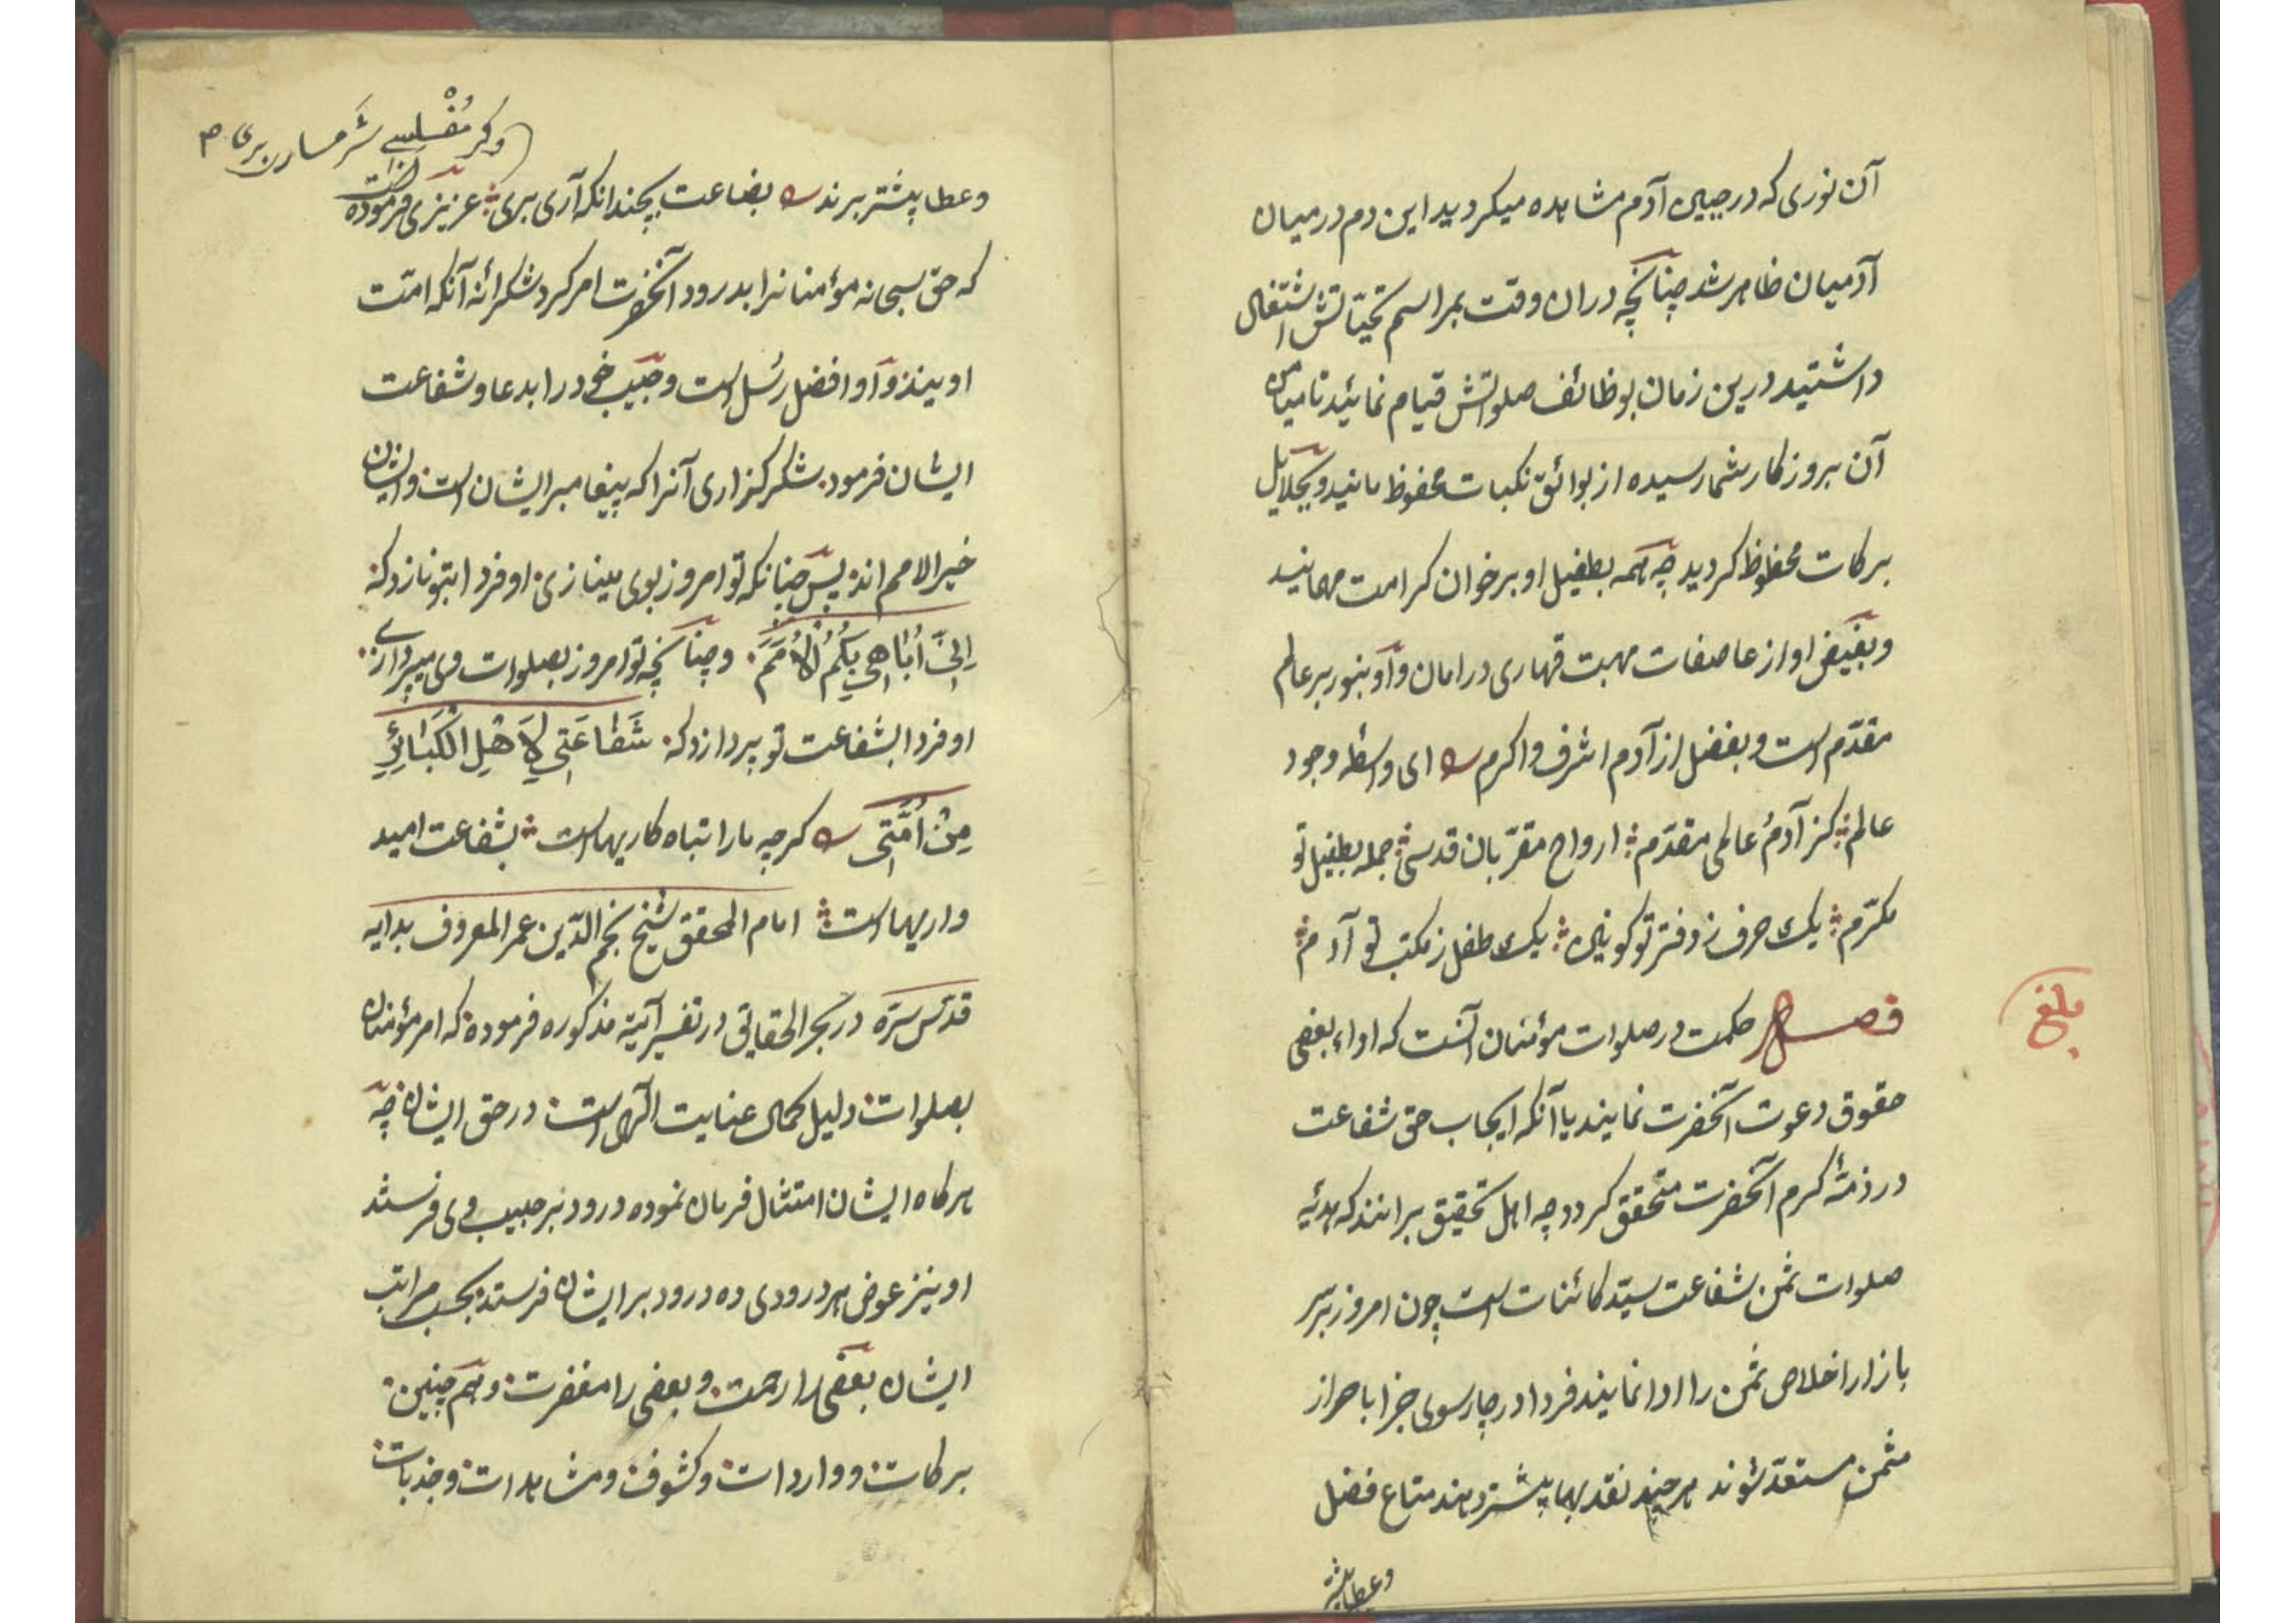 آن نوری که در جبین آدم مشاهده میکردید این دم در میان
آدمیان ظاهر شد چنانچه دران وقت بمراسم تحیّاتش اشتغال
داشتید درین زمان بوظائف صلواتش قیام نمائید تا میامن
آن بروزکار شما رسیده از بوائق نکبات محفوظ مانید و بجلایل
برکات محظوظ کردید چه همه بطفیل او بر خوان کرامت مهمانید
و بفیض او از عاصفات مهبت قهاری در امان و او بنور بر عالم
مقدّم است و بفضل از آدم اشرف و اکرم ای واسطه وجود
عالم کز آدم عالمی مقدّم ارواح مقرّبان قدسی جمله بطفیل تو
مکرّم یک حرف ز دفتر تو کونین یک طفل ز مکتب تو آدم
فصل حکمت در صلوات مؤمنان آنست که اداء بعضی
حقوق دعوت آنحضرت نمایند یا آنکه ایجاب حق شفاعت
در ذمّهٔ کرم آنحضرت متحقق کردد چه اهل تحقیق برانند که هدئیه
صلوات ثمن شفاعت سیّد کائنات است چون امروز بر سر
بازار اخلاص ثمن را ادا نمایند فردا در چارسوی جزا باحراز
مثمن مستعدّ شوند هر چند نقد بها پیشتر دهند متاع فضل
وعطا پیشتر
بلغ
وکر مُفْلِسی شَرمسارر بری م
وعطا پیشتر برند بضاعت بچندانکه آری بری عزیزی فرموده
که حق سبحانه مؤمنانرا بدرود آنحضرت امر کرد شکرانهٔ آنکه امّت
اویند و او افضل رُسل است و حبیب خود را بدعا و شفاعت
ایشان فرمود شکر کزاری آنرا که پیغامبر ایشان است و ایشان
خیر الامم اند پس چنانکه تو امروز بوی مینازی او فردا بتو نازد که
اِنّی اُبَاهِی بِکُمُ الْاُمَمَ و چنانچه تو امروز بصلوات وی میپردازی
او فردا بشفاعت تو پردازد که شَفَاعَتِی لِاَهْلِ الْکَبَائِرِ
مِنْ اُمَّتِی کرچه ما را تباه کاریهاست بشفاعت امید
واریهاست امام المحقق شیخ نجم الدّین عمر المعروف بدایه
قدّس سرّه در بحر الحقایق در تفسیر آیتهٔ مذکوره فرموده که امر مؤمنان
بصلوات دلیل کمال عنایت الٓهی است در حق ایشان چه
هرکاه ایشان امتثال فرمان نموده درود بر حبیب وی فرستند
او نیز عوض هر درودی ده درود بر ایشان فرستد بحسب مراتب
ایشان بعضی را رحمت و بعضی را مغفرت و همچنین
برکات و واردات و کشوف و مشاهدات و جذبات